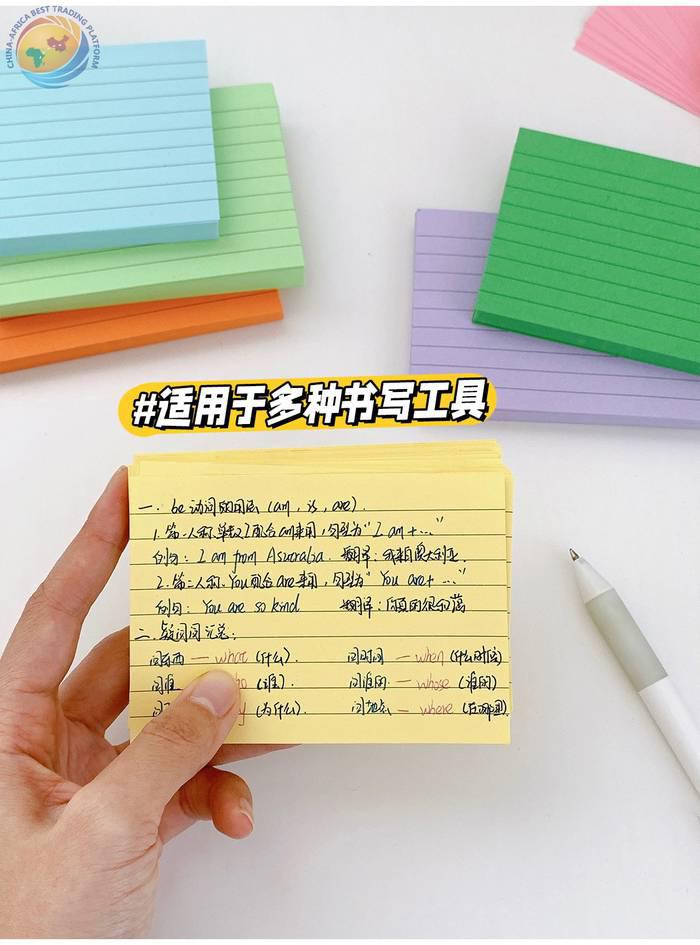 CHINA-AFRICA BEST TRADING PLATFORM
#适用于多种书写工具
一、be动词的用法 (am, is, are).
1. 第一人称单数I配合am来用,句型为"I am+…"
例句: I am from Asutralia. 翻译:我来自澳大利亚.
2. 第二人称You配合are来用,句型为"You are+…"
例句: You are so kind 翻译:你真的很和蔼
二、疑问词汇总:
问东西 — what (什么). 问时间 — when (什么时候)
问谁 (谁). 问谁的 — whose (谁的)
(为什么). 问地点 — where (在哪里).